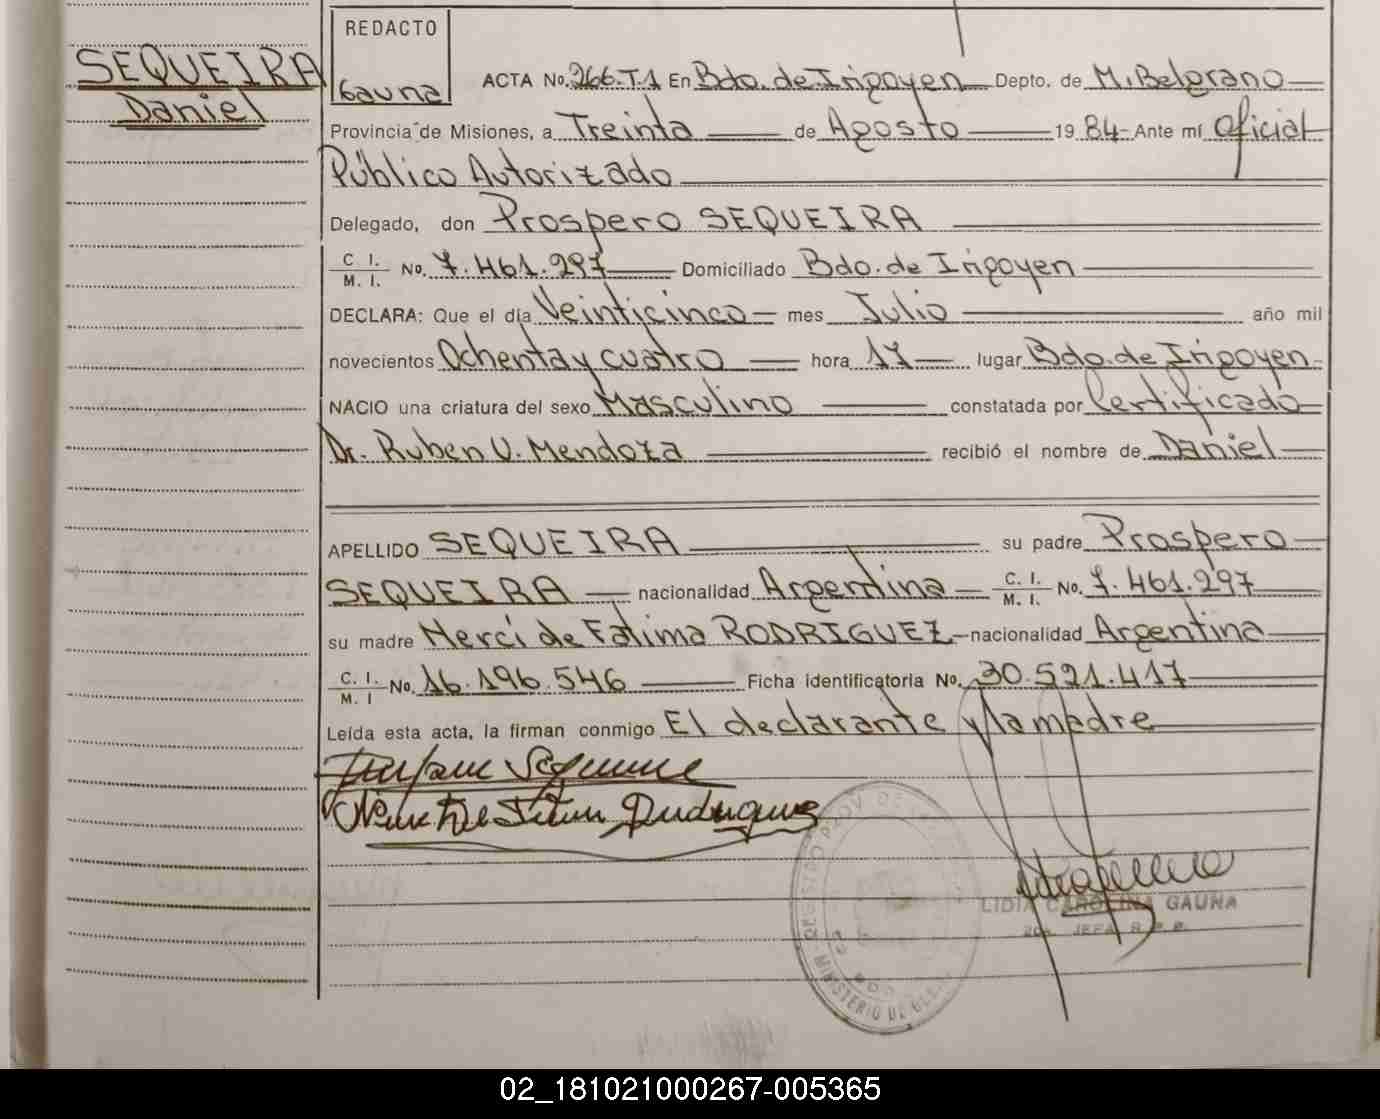 SEQUEIRA
Daniel
REDACTO
Gauna
ACTA No. 266.T.1 En Bdo. de Irigoyen Depto. de M. Belgrano
Provincia de Misiones, a Treinta de Agosto 19 84 - Ante mí Oficial
Público Autorizado
Delegado, don Prospero SEQUEIRA
C. I.
M. I. No. 7.461.297 Domiciliado Bdo. de Irigoyen
DECLARA: Que el día Veinticinco mes Julio año mil
novecientos Ochenta y cuatro hora 17 lugar Bdo. de Irigoyen
NACIO una criatura del sexo Masculino constatada por Certificado
Dr. Ruben V. Mendoza recibió el nombre de Daniel
APELLIDO SEQUEIRA su padre Prospero
SEQUEIRA nacionalidad Argentina C. I. M. I. No. 7.461.297
su madre Merci de Fatima RODRIGUEZ - nacionalidad Argentina
C. I.
M. I No. 16.196.546 Ficha identificatoria No. 30.521.417
Leída esta acta, la firman conmigo El declarante y la madre
LIDIA CAROLINA GAUNA
REGISTRO PROV. DE
MINISTERIO DE
02_181021000267-005365